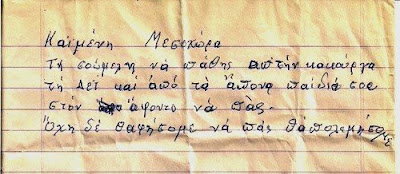 Καϊμένη Μεσοχώρα
Τή σούμελη νά πάθης απτήν κακούργα
τή Δεϊ καί από τά άπονα παιδιά σος
στόν άφοντο νά πάς.
Όχη δέ θαφήσομε νά πάς θαπολεμήσομε